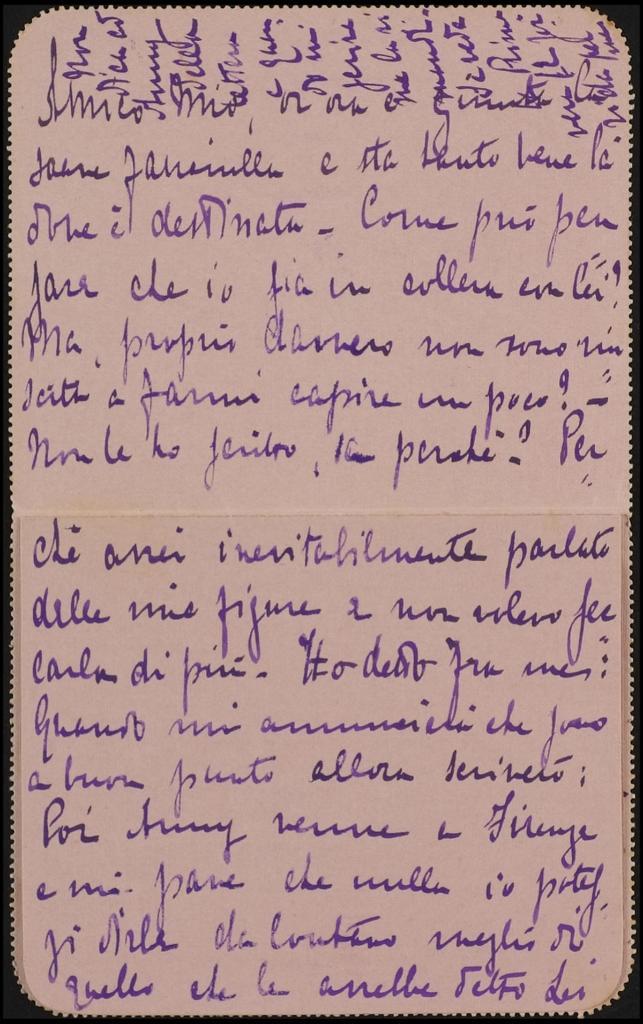 Non
dica ad
Anny
della
lettera
Amico mio, or ora è giunta la
soave fanciulla e sta tanto bene là
dove è destinata – Come può pen
sare che io sia in collera con Lei?
Ma, proprio davvero non sono riu
scita a farmi capire un poco? –
Non le ho scritto, sa perchè? Per
chè avrei inevitabilmente parlato
delle mie figure e non volevo sec
carla di più. Ho detto fra me:
Quando mi annuncierà che sono
a buon punto allora scriverò;
Poi Anny venne a Firenze
e mi pare che nulla io potes
si dirle da lontano meglio di
quello che le avrebbe detto Lei